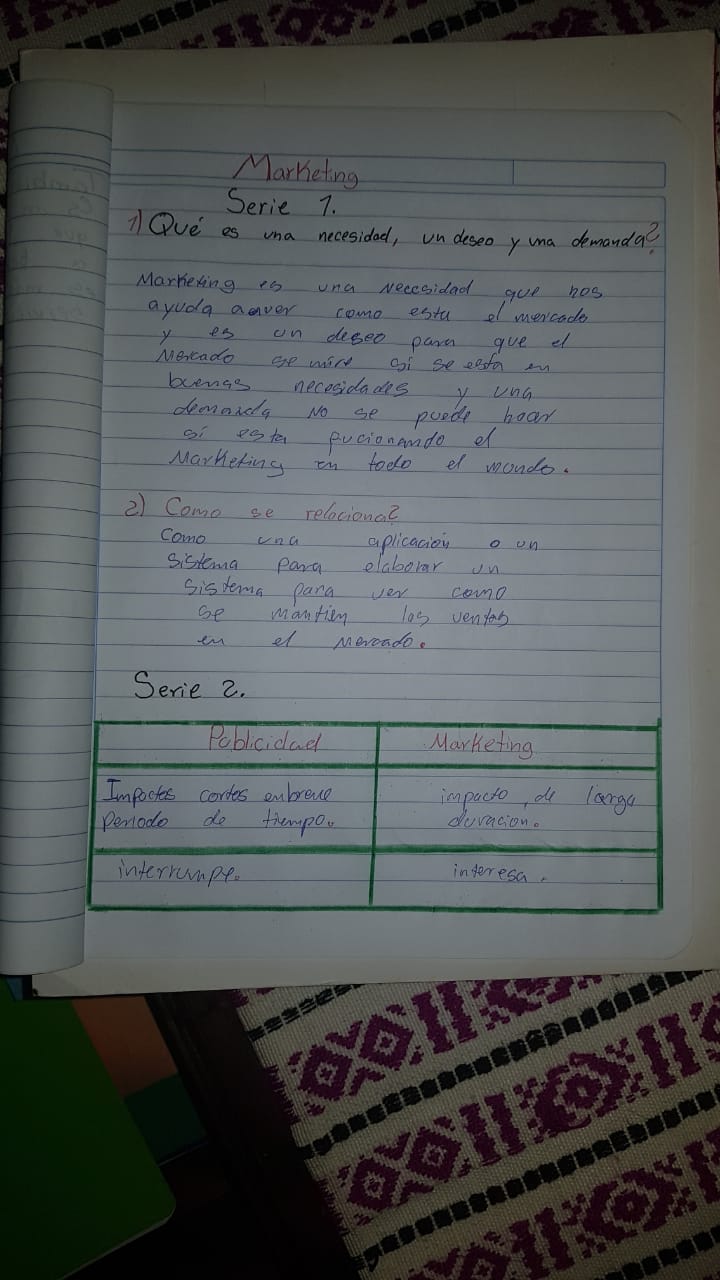 Marketing
Serie 1.
1) Qué es una necesidad, un deseo y una demanda?
Marketing es una necesidad que nos
ayuda aaver como esta el mercado
y es un deseo para que el
Mercado se mire si se esta en
buenas necesidades y una
demanda No se puede hacer
si esta fucionando el
Marketing en todo el mundo.
2) Como se relaciona?
Como una aplicación o un
sistema para elaborar un
sistema para ver como
se mantien las ventas
en el Mercado.
Serie 2.
Publicidad Marketing
Impactos cortos en breve impacto, de larga
periodo de tiempo. duracion.
interrumpe. interesa.